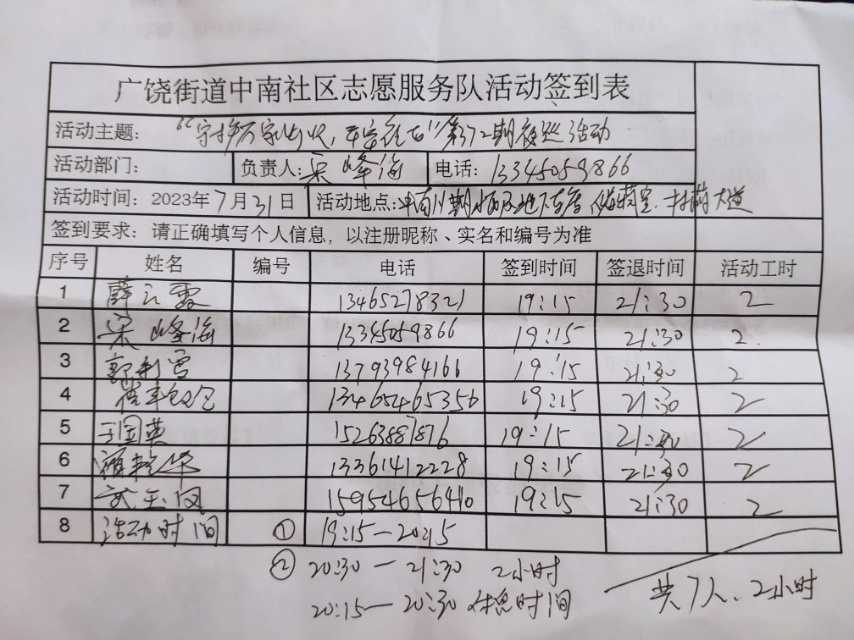 广饶街道中南社区志愿服务队活动签到表
活动主题:“守护万家灯火,平安谷石”第72期夜巡活动
活动部门: 负责人:宋峰海 电话:13345059866
活动时间:2023年7月31日 活动地点:中南 期 地下车库、 大道
签到要求:请正确填写个人信息,以注册昵称、实名和编号为准
序号 姓名 编号 电话 签到时间 签退时间 活动工时
1 薛云霞 13465278321 19:15 21:30 2
2 宋峰海 13345059866 19:15 21:30 2
3 郭利雪 13793984166 19:15 21:30 2
4 崔 13465465356 19:15 21:30 2
5 王国英 15263887876 19:15 21:30 2
6 颜艳华 13361412228 19:15 21:30 2
7 武玉凤 15954656410 19:15 21:30 2
8 活动时间 ① 19:15—20:15
② 20:30—21:30 2小时
20:15—20:30休息时间
共7人、2小时